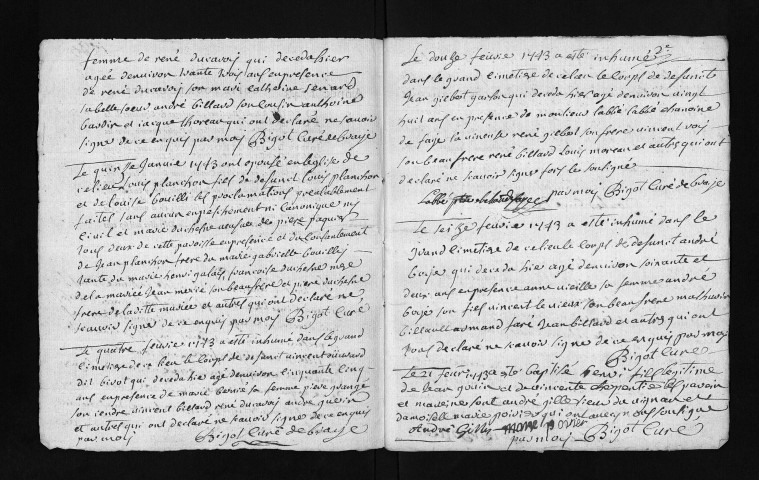 femme de rené duravois qui deceda hier
agée denviron trante trois ans en presence
de rené duravois son mary catherine
sa belle soeur andré billard son cousin anthoine
et jacque thoreau qui ont declaré ne scavoir
signe de ce enquis par moy Bigot Curé de braye
Le quinze Janvier 1743 ont epousé en leglise de
ce lieu Louis planchon fils de defunct Louis planchon
et de Louise bouilli les proclamations prealablement
faites sans aucun enpeschement ni Canonique ny
Civil et marie duchesne veufve de pierre
tous deux de cette paroisse en presence et du consentement
de Jean planchon frere du marié gabrielle bouilli
tante du marié henri francoise duchesne mere
de la mariée Jean son beau frere et piere duchesne
frere de la ditte mariée et autres qui ont declaré ne
scavoir signe de ce enquis par moy Bigot Curé
Le quatre fevrie 1743 a esté inhumé dans le grand
cimetiere de ce lieu le corps de defunct vincent
dit bivot qui deceda hier agé denviron cinquante cinq
ans en presence de marie sa femme piere
son gendre vincent billard rené duravois andré guerin
et autres qui ont declaré ne scavoir signe de ce enquis
par moy Bigot Curé de braye
Le douze fevrie 1743 a esté inhumé
dans le grand cimetiere de ce lieu le corps de defunct
Jean giebot garson qui deceda hier agé denviron vingt
huit ans en presence de monsieur labbé labbé chanoine
de faye la vineuse rené giebot son frere vincent
son beau frere rené billard Louis moreau et autres qui ont
declaré ne scavoir signe fors le soussigné
par moy Bigot Curé de braye
Le seize fevrie 1743 a esté inhumé dans le
grand cimetiere de ce lieu le corps de defunct andré
qui deceda hier agé denviron soixante et
deux ans en presence anne vieille sa femme andré
son fils vincent le vieux son beau frere mathurin
billault armand faré Jean billard et autres qui ont
tous declaré ne scavoir signe de ce enquis par moy
Bigot Curé
Le 21 fevrie 1743 a esté baptisé henri fils legitime
de Jean et de vincente les parein
et mareine sont andré gille sieur du vignau et
damoiselle marie poirier qui ont avec nous soussigné
André Gilly marie poirier
par moy Bigot Curé